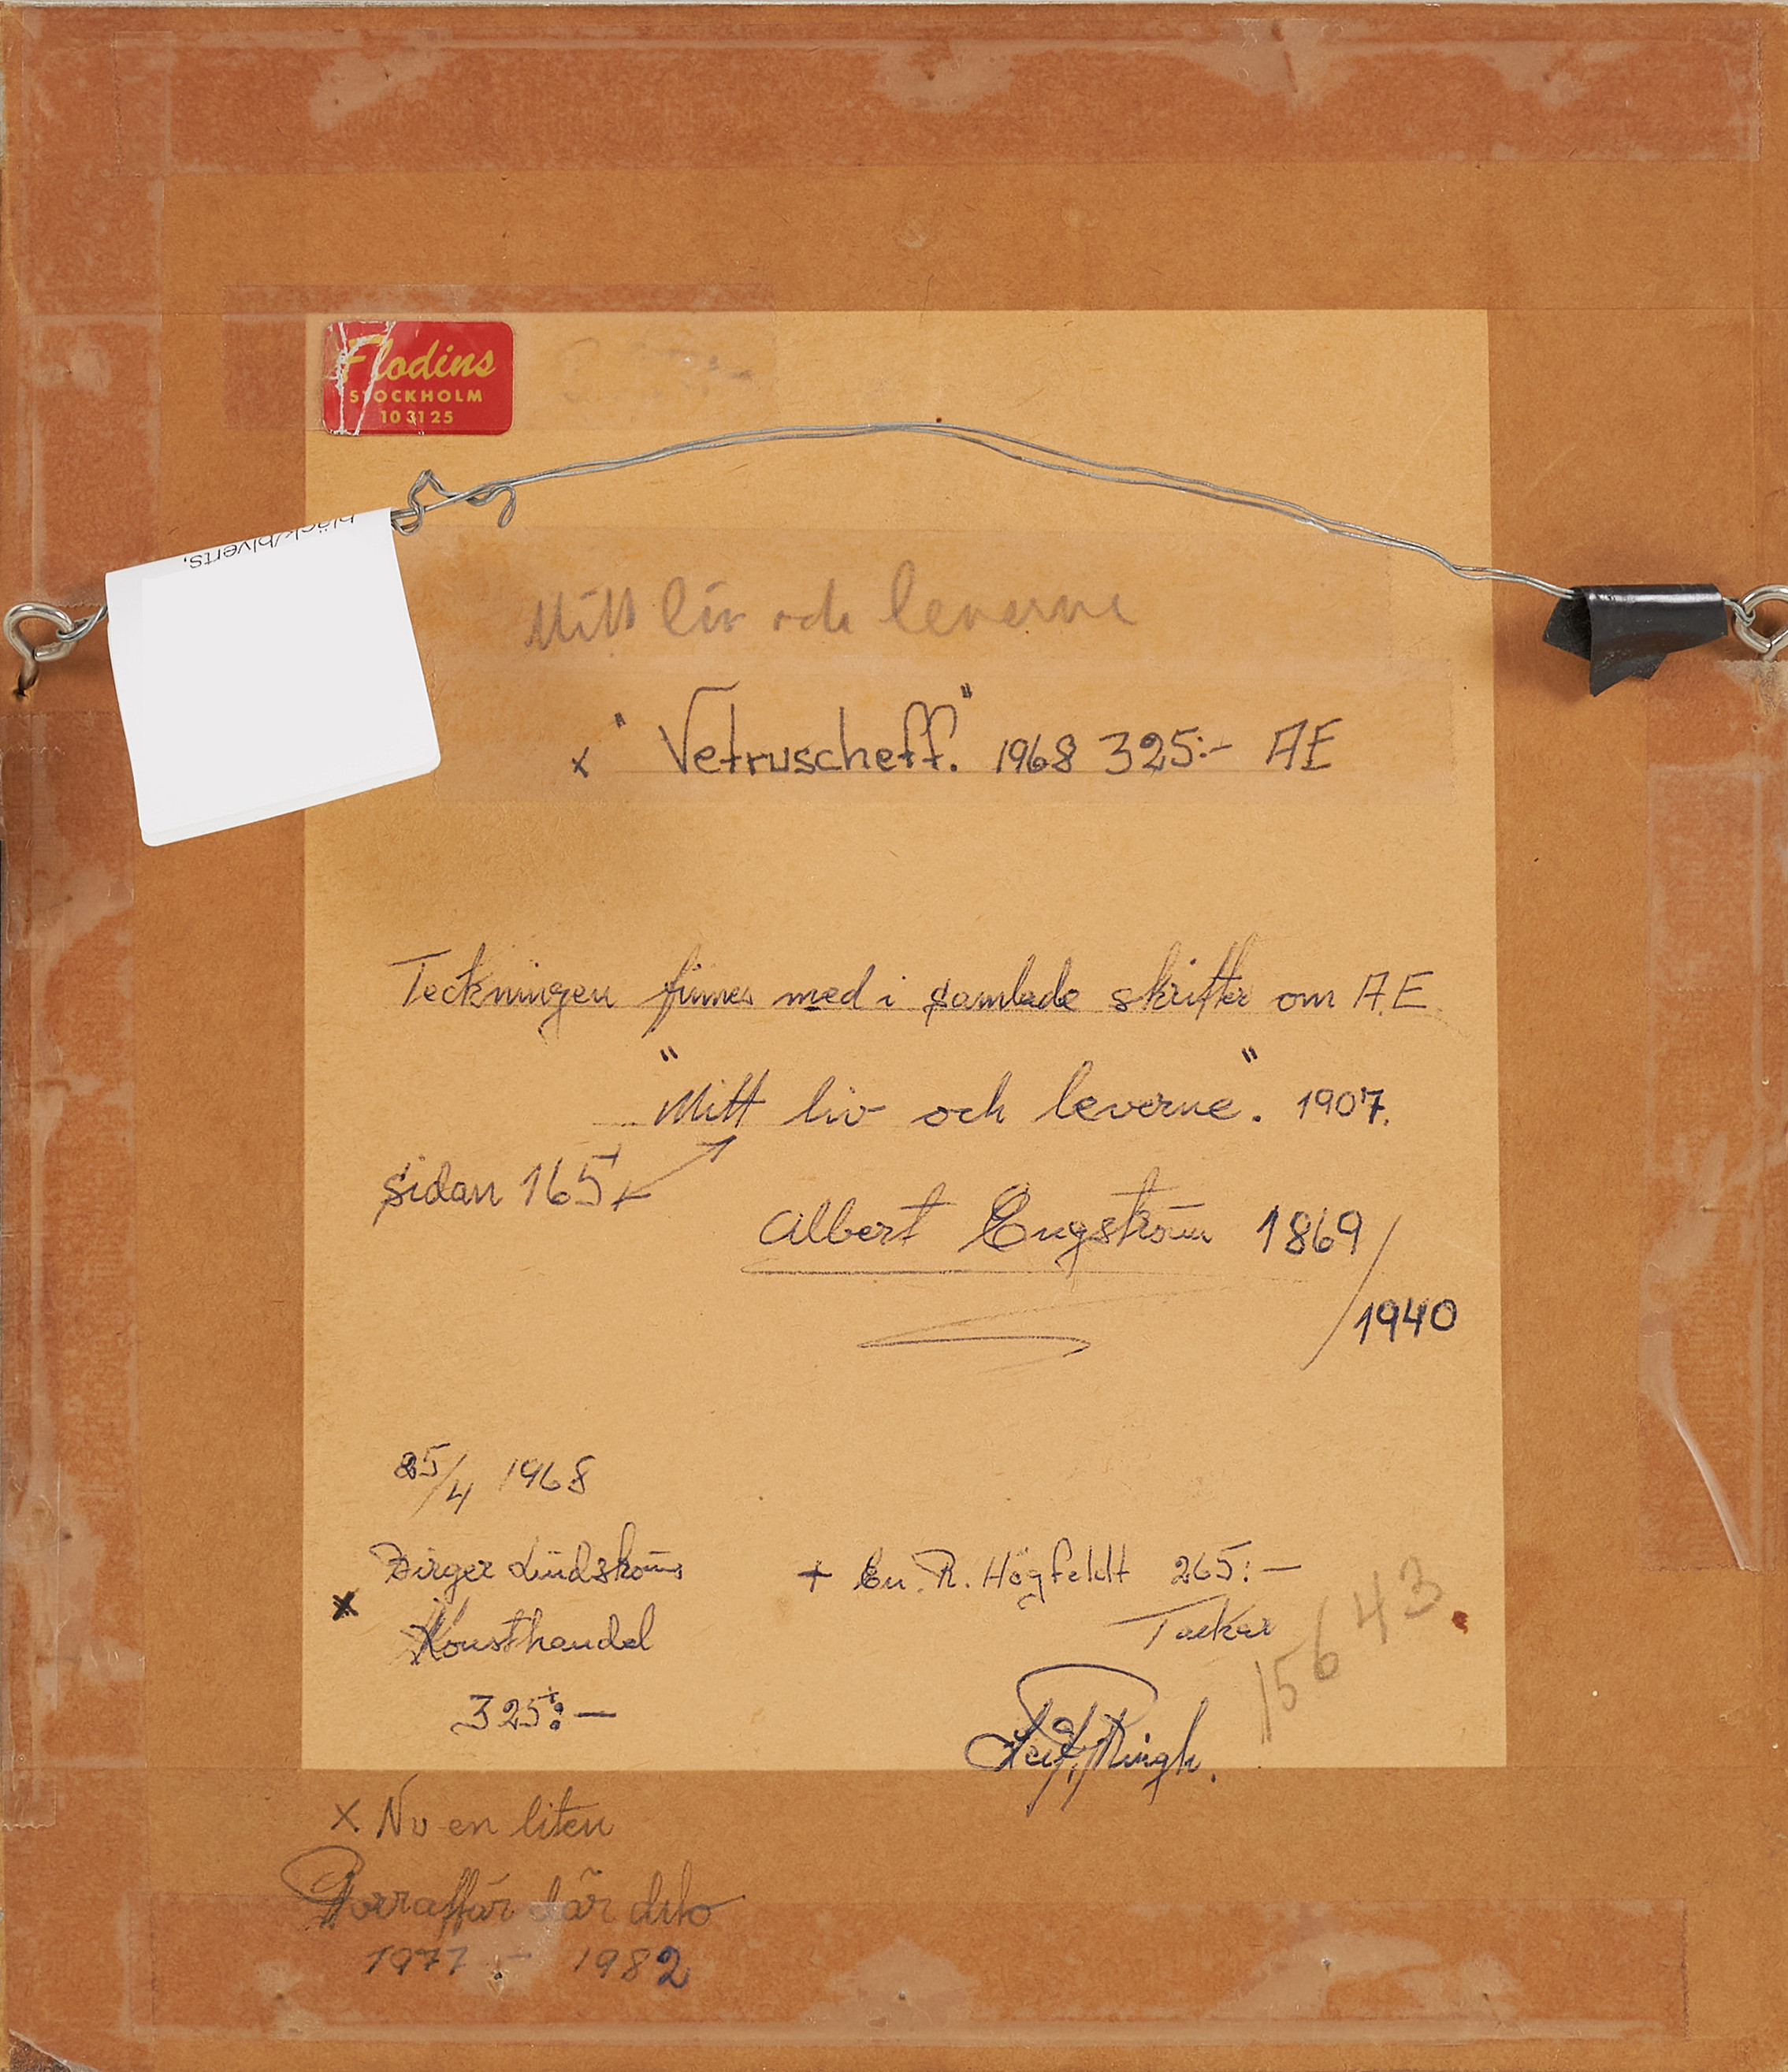 Flodins
STOCKHOLM
10 31 25
bläck/blyerts,
Mitt liv och leverne
x "Vetruscheff." 1968 325:- AE
Teckningen finnes med i samlade skrifter om A.E
"Mitt liv och leverne". 1907.
sidan 165
Albert Engström 1869/
1940
25/4 1968
Birger Lindströms
x Konsthandel
325:-
+ En. R. Högfeldt 265:-
15643
x Nu en liten
där dito
1977 - 1982